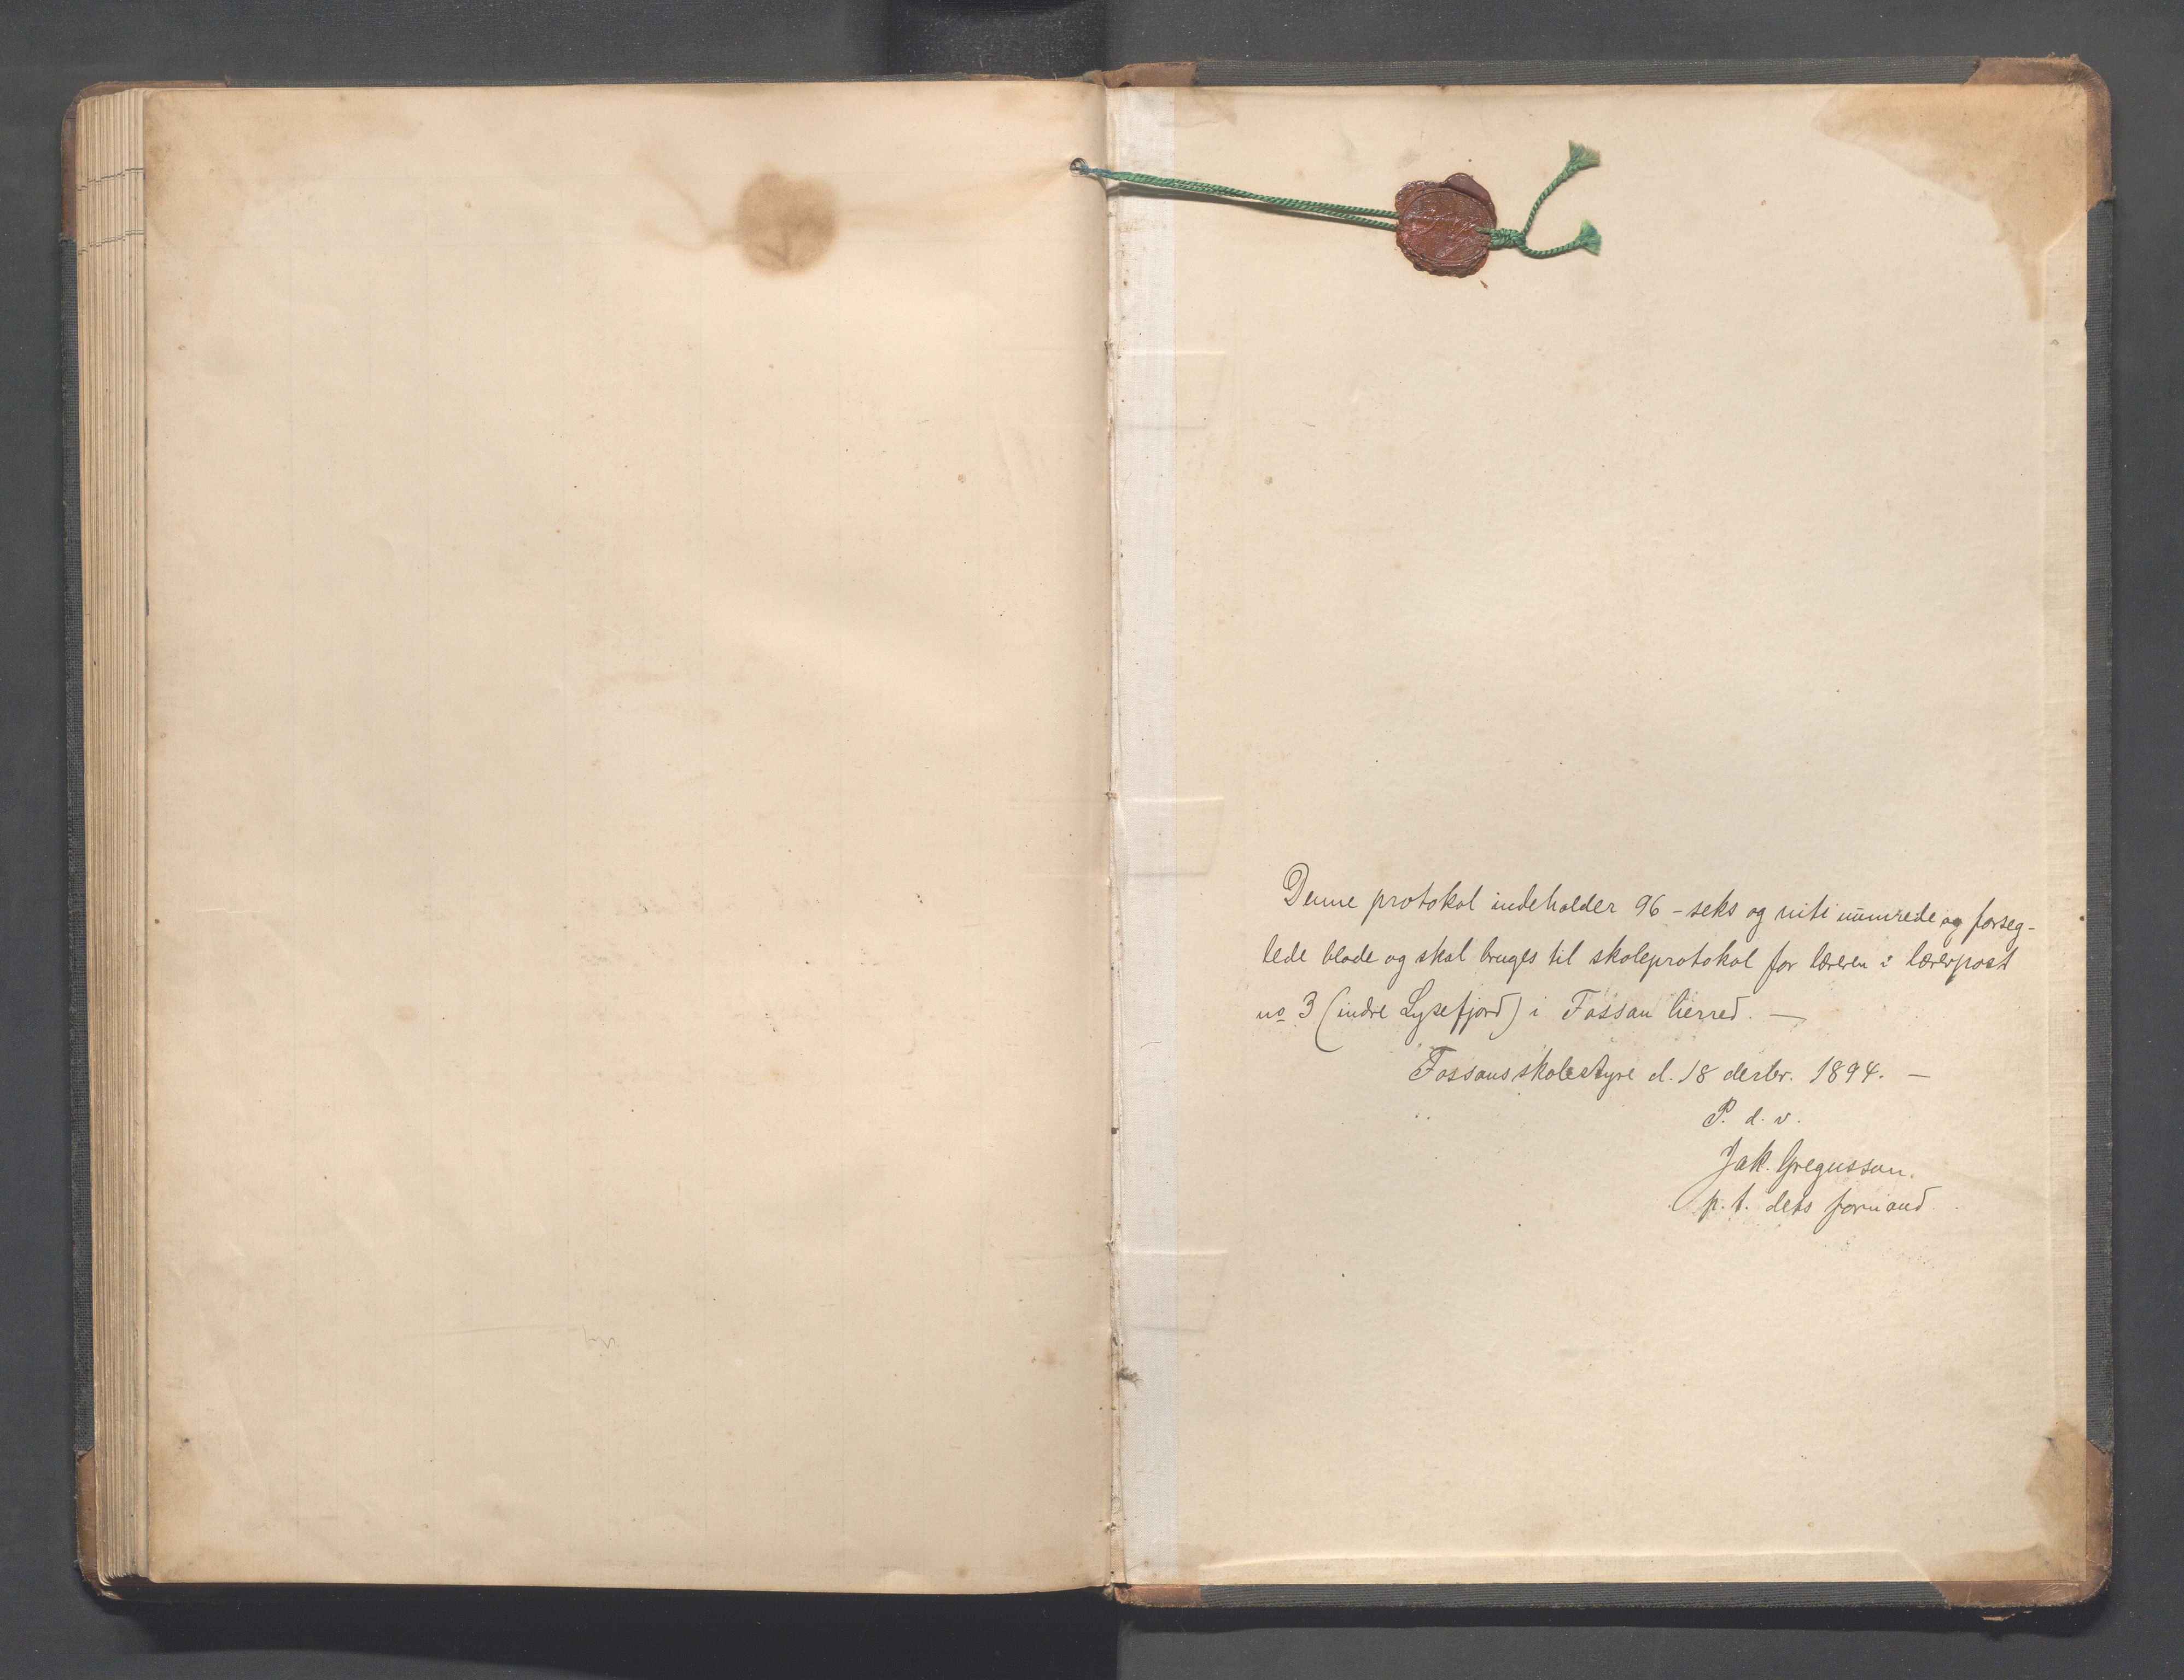 Denne protokol indeholder 96 - seks og niti numrede og forseg-
lede blade og skal bruges til skoleprotokol for læreren i lærerpost
no 3 (indre Lysefjord) i Fossan herred. —
Fossans skolestyre d. 18 decbr. 1894. —
P. d. v.
Jak. Gregussen.
p. t. dets formand.